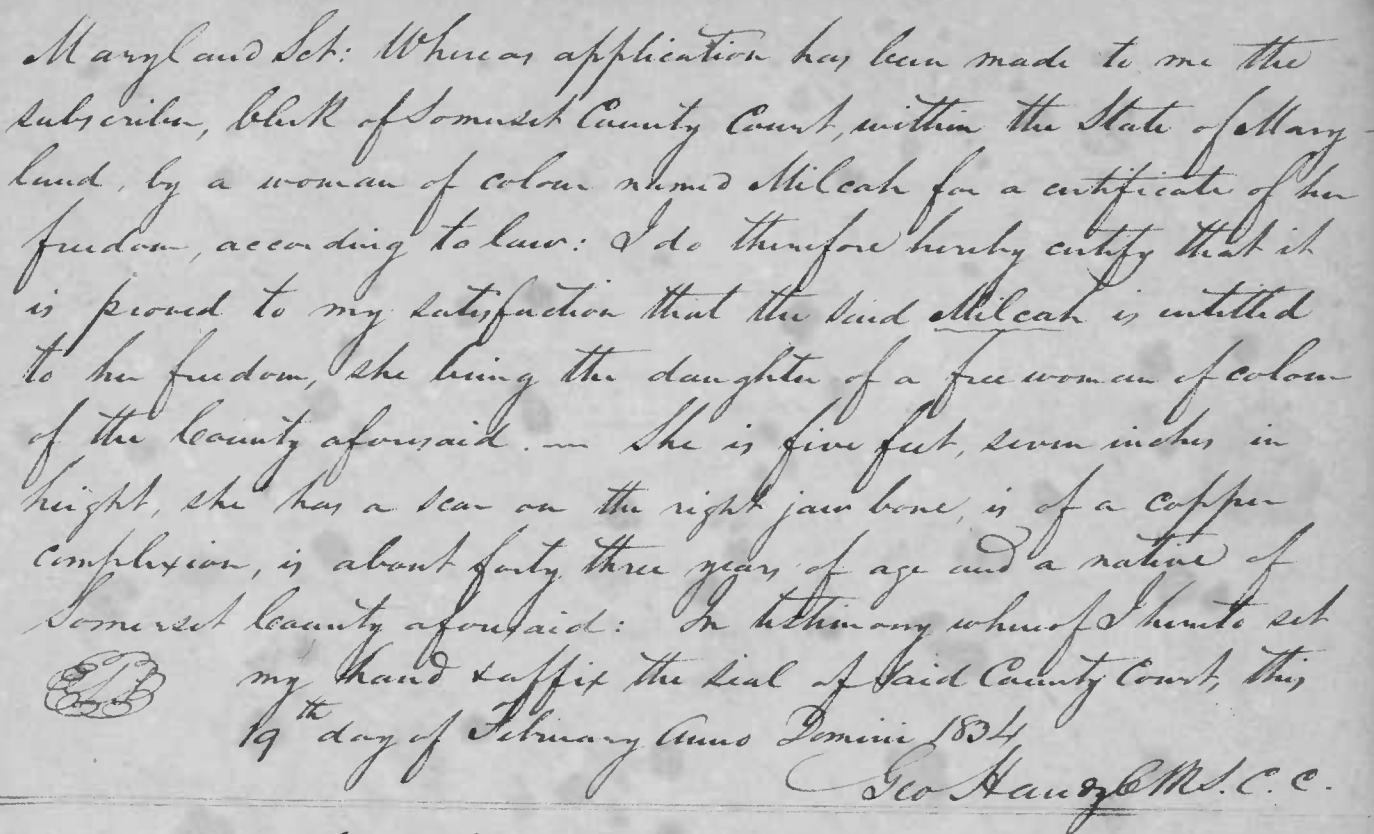 Maryland Sct: Whereas application has been made to me the
subscriber, Clerk of Somerset County Court, within the State of Mary-
land, by a woman of colour named Milcah for a certificate of her
freedom, according to law: I do therefore hereby certify that it
is proved to my satisfaction that the said Milcah is entitled
to her freedom, she being the daughter of a free woman of colour
of the County aforesaid. — She is five feet, seven inches in
height, she has a scar on the right jaw bone, is of a copper
complexion, is about forty three years of age and a native of
Somerset County aforesaid: In testimony whereof I hereto set
my hand & affix the seal of said County Court, this
19th day of February Anno Domini 1834
Geo Handy Clk S. C. C.